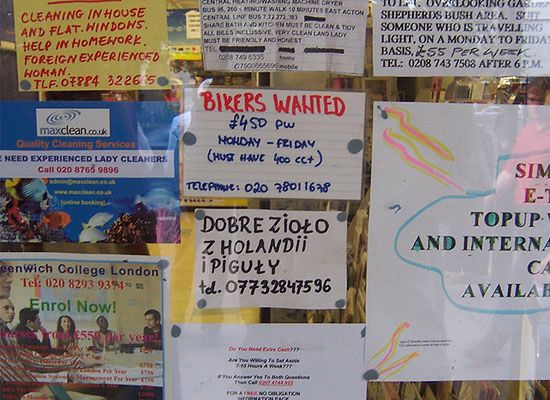 CLEANING IN HOUSE
AND FLAT. WINDOWS.
HELP IN HOMEWORK.
FOREIGN EXPERIENCED
WOMAN.
TLF. 07884 322665
CENTRAL HEATING/WASHING MACHINE DRYER
CENTRAL LINE BUS 7,72,272,283
SHARE BATH AND KITCHEN. MUST BE CLEAN & TIDY
ALL BILLS INCLUSIVE. VERY CLEAN LADY
MUST BE FRIENDLY AND HONEST
0208 749 6335 home
mobile
OVERLOOKING GARDEN
SHEPHERDS BUSH AREA. SUIT
SOMEONE WHO IS TRAVELLING
LIGHT, ON A MONDAY TO FRIDAY
BASIS, £55 PER WEEK.
TEL: 0208 743 7508 AFTER 6 P.M.
BIKERS WANTED
£450 PW
MONDAY - FRIDAY
(MUST HAVE 400 CC+)
TELEPHONE: 020 78011678
maxclean.co.uk
Quality Cleaning Services
WE NEED EXPERIENCED LADY CLEANERS
Call 020 8765 9896
admin@maxclean.co.uk
www.maxclean.co.uk
(online booking)
DOBRE ZIOŁO
Z HOLANDII
I PIGUŁY
tel. 07732847596
SIM
E-T
TOPUP
AND INTERNA
CA
AVAILAB
eenwich College London
Tel: 020 8293 9374
Enrol Now!
from £550 per year!
Do You Need Extra Cash???
Are You Willing To Set Aside
7-10 Hours A Week???
If You Answer Yes To Both Questions
Then Call 0207 4744 923
FOR A FREE NO OBLIGATION
INFORMATION PACK